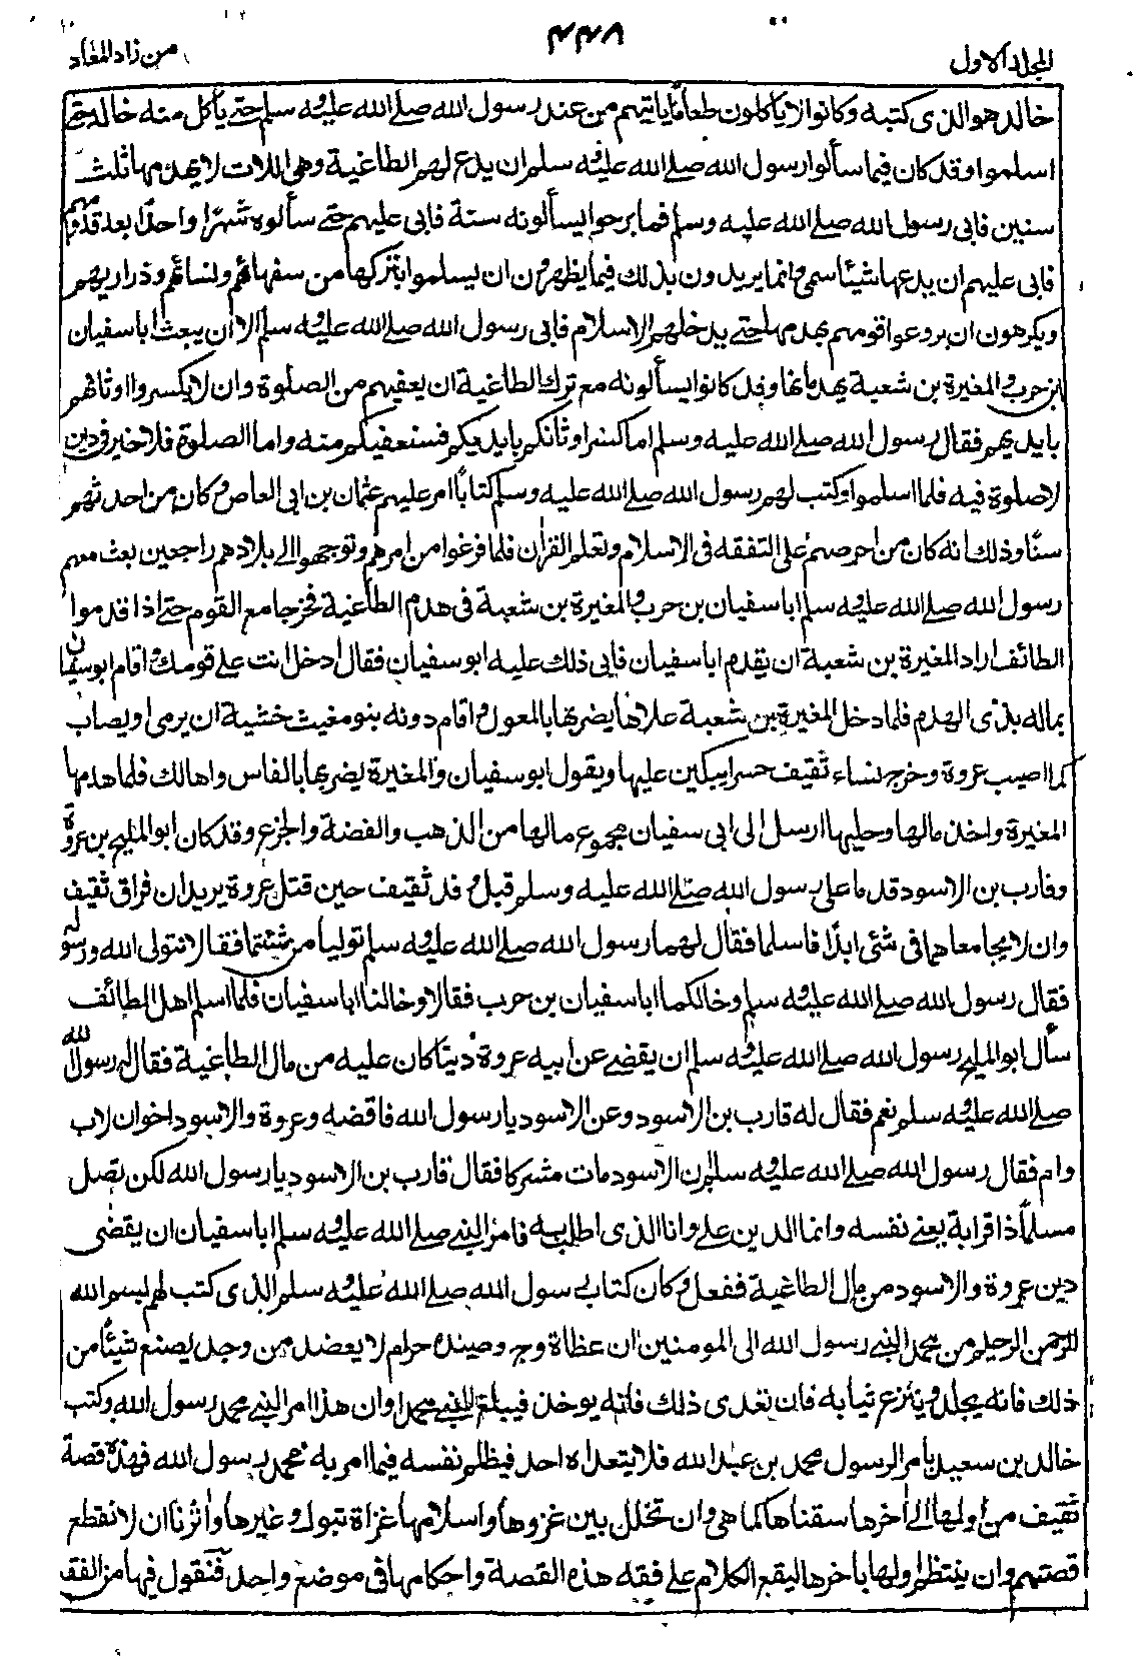 المجلد الاول
٤٤٨
من زاد المعاد
خالد هو الذى كتبه وكانوا لا ياكلون طعاما ياتيهم من عند رسول الله صلے الله عليه وسلم حتے ياكل منه خالد حتے
اسلموا وقد كان فيما سألوا رسول الله صلے الله عليه وسلم ان يدع لهم الطاغية وهى اللات لا يهدمها ثلث
سنين فابى رسول الله صلے الله عليه وسلم فما برحوا يسألونه سنة سنة فابى عليهم حتے سألوه شهرًا واحدًا بعد قدومهم
فابى عليهم ان يدعها شيئا مسمى وانما يريدون بذلك فيما يظهرون ان يسلموا بتركها من سفهائهم ونسائهم وذراريهم
ويكرهون ان يروعوا قومهم بهدمها حتے يدخلهم الاسلام فابى رسول الله صلے الله عليه وسلم الا ان يبعث اباسفيان
ابن حرب والمغيرة بن شعبة يهدمانها وقد كانوا يسألونه مع ترك الطاغية ان يعفيهم من الصلوة وان لا يكسروا اوثانهم
بايديهم فقال رسول الله صلے الله عليه وسلم اما كسر اوثانكم بايديكم فسنعفيكم منه واما الصلوة فلا خير فى دين
لا صلوة فيه فلما اسلموا وكتب لهم رسول الله صلے الله عليه وسلم كتابًا امر عليهم عثمان بن ابى العاص وكان من احدثهم
سنًّا وذلك انه كان من احرصهم على التفقه فى الاسلام وتعلم القران فلما فرغوا من امرهم وتوجهوا الى بلادهم راجعين بعث معهم
رسول الله صلے الله عليه وسلم اباسفيان بن حرب والمغيرة بن شعبة فى هدم الطاغية فخرجا مع القوم حتے اذا قدموا
الطائف اراد المغيرة بن شعبة ان يقدم اباسفيان فابى ذلك عليه ابوسفيان فقال ادخل انت على قومك واقام ابوسفيان
بماله بذى الهدم فلما دخل المغيرة بن شعبة علاها يضربها بالمعول واقام دونه بنو مغيث خشية ان يرمى او يصاب
كما اصيب عروة وخرج نساء ثقيف حسرا يبكين عليها ويقول ابوسفيان والمغيرة يضربها بالفاس واها لك فلما هدمها
المغيرة واخذ مالها وحليها ارسل الى ابى سفيان مجموع مالها من الذهب والفضة والجزع وقد كان ابو المليح بن عروة
وقارب بن الاسود قدما على رسول الله صلے الله عليه وسلم قبل وفد ثقيف حين قتل عروة يريدان فراق ثقيف
وان لا يجامعاهما فى شئى ابدًا فاسلما فقال لهما رسول الله صلے الله عليه وسلم توليا من شئتما فقالا نتولى الله ورسوله
فقال رسول الله صلے الله عليه وسلم وخالكما اباسفيان بن حرب فقالا وخالنا اباسفيان فلما اسلم اهل الطائف
سأل ابو المليح رسول الله صلے الله عليه وسلم ان يقضے عن ابيه عروة دينا كان عليه من مال الطاغية فقال له رسول الله
صلے الله عليه وسلم نعم فقال له قارب بن الاسود وعن الاسود يا رسول الله فاقضه وعروة والاسود اخوان لاب
وام فقال رسول الله صلے الله عليه وسلم ان الاسود مات مشركا فقال قارب بن الاسود يا رسول الله لكن تصل
مسلمًا ذا قرابة يعنے نفسه وانما الدين علے وانا الذى اطلب به فامر النبے صلے الله عليه وسلم اباسفيان ان يقضى
دين عروة والاسود من مال الطاغية ففعل وكان كتاب رسول الله صلے الله عليه وسلم الذى كتب لهم بسم الله
الرحمن الرحيم من محمد النبے رسول الله الى المومنين ان عظاة وج وصيده حرام لا يعضد من وجد يصنع شيئًا من
ذلك فانه يجلد وينزع ثيابه فان تعدى ذلك فانه يوخذ فيبلغ النبے محمدا وان هذا امر النبے محمد رسول الله وكتب
خالد بن سعيد بأمر الرسول محمد بن عبد الله فلا يتعداه احد فيظلم نفسه فيما امر به محمد رسول الله فهذه قصة
ثقيف من اولها الى اخرها سقناها كما هى وان تخلل بين غزوها واسلامها غزاة تبوك وغيرها واثرنا ان لا نقطع
قصتهم وان ينتظم اولها باخرها ليقع الكلام على فقه هذه القصة واحكامها فى موضع واحد فنقول فيها من الفقه